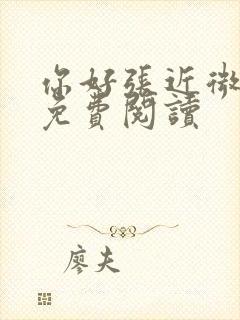 你好張近微
免費閱讀
廖夫